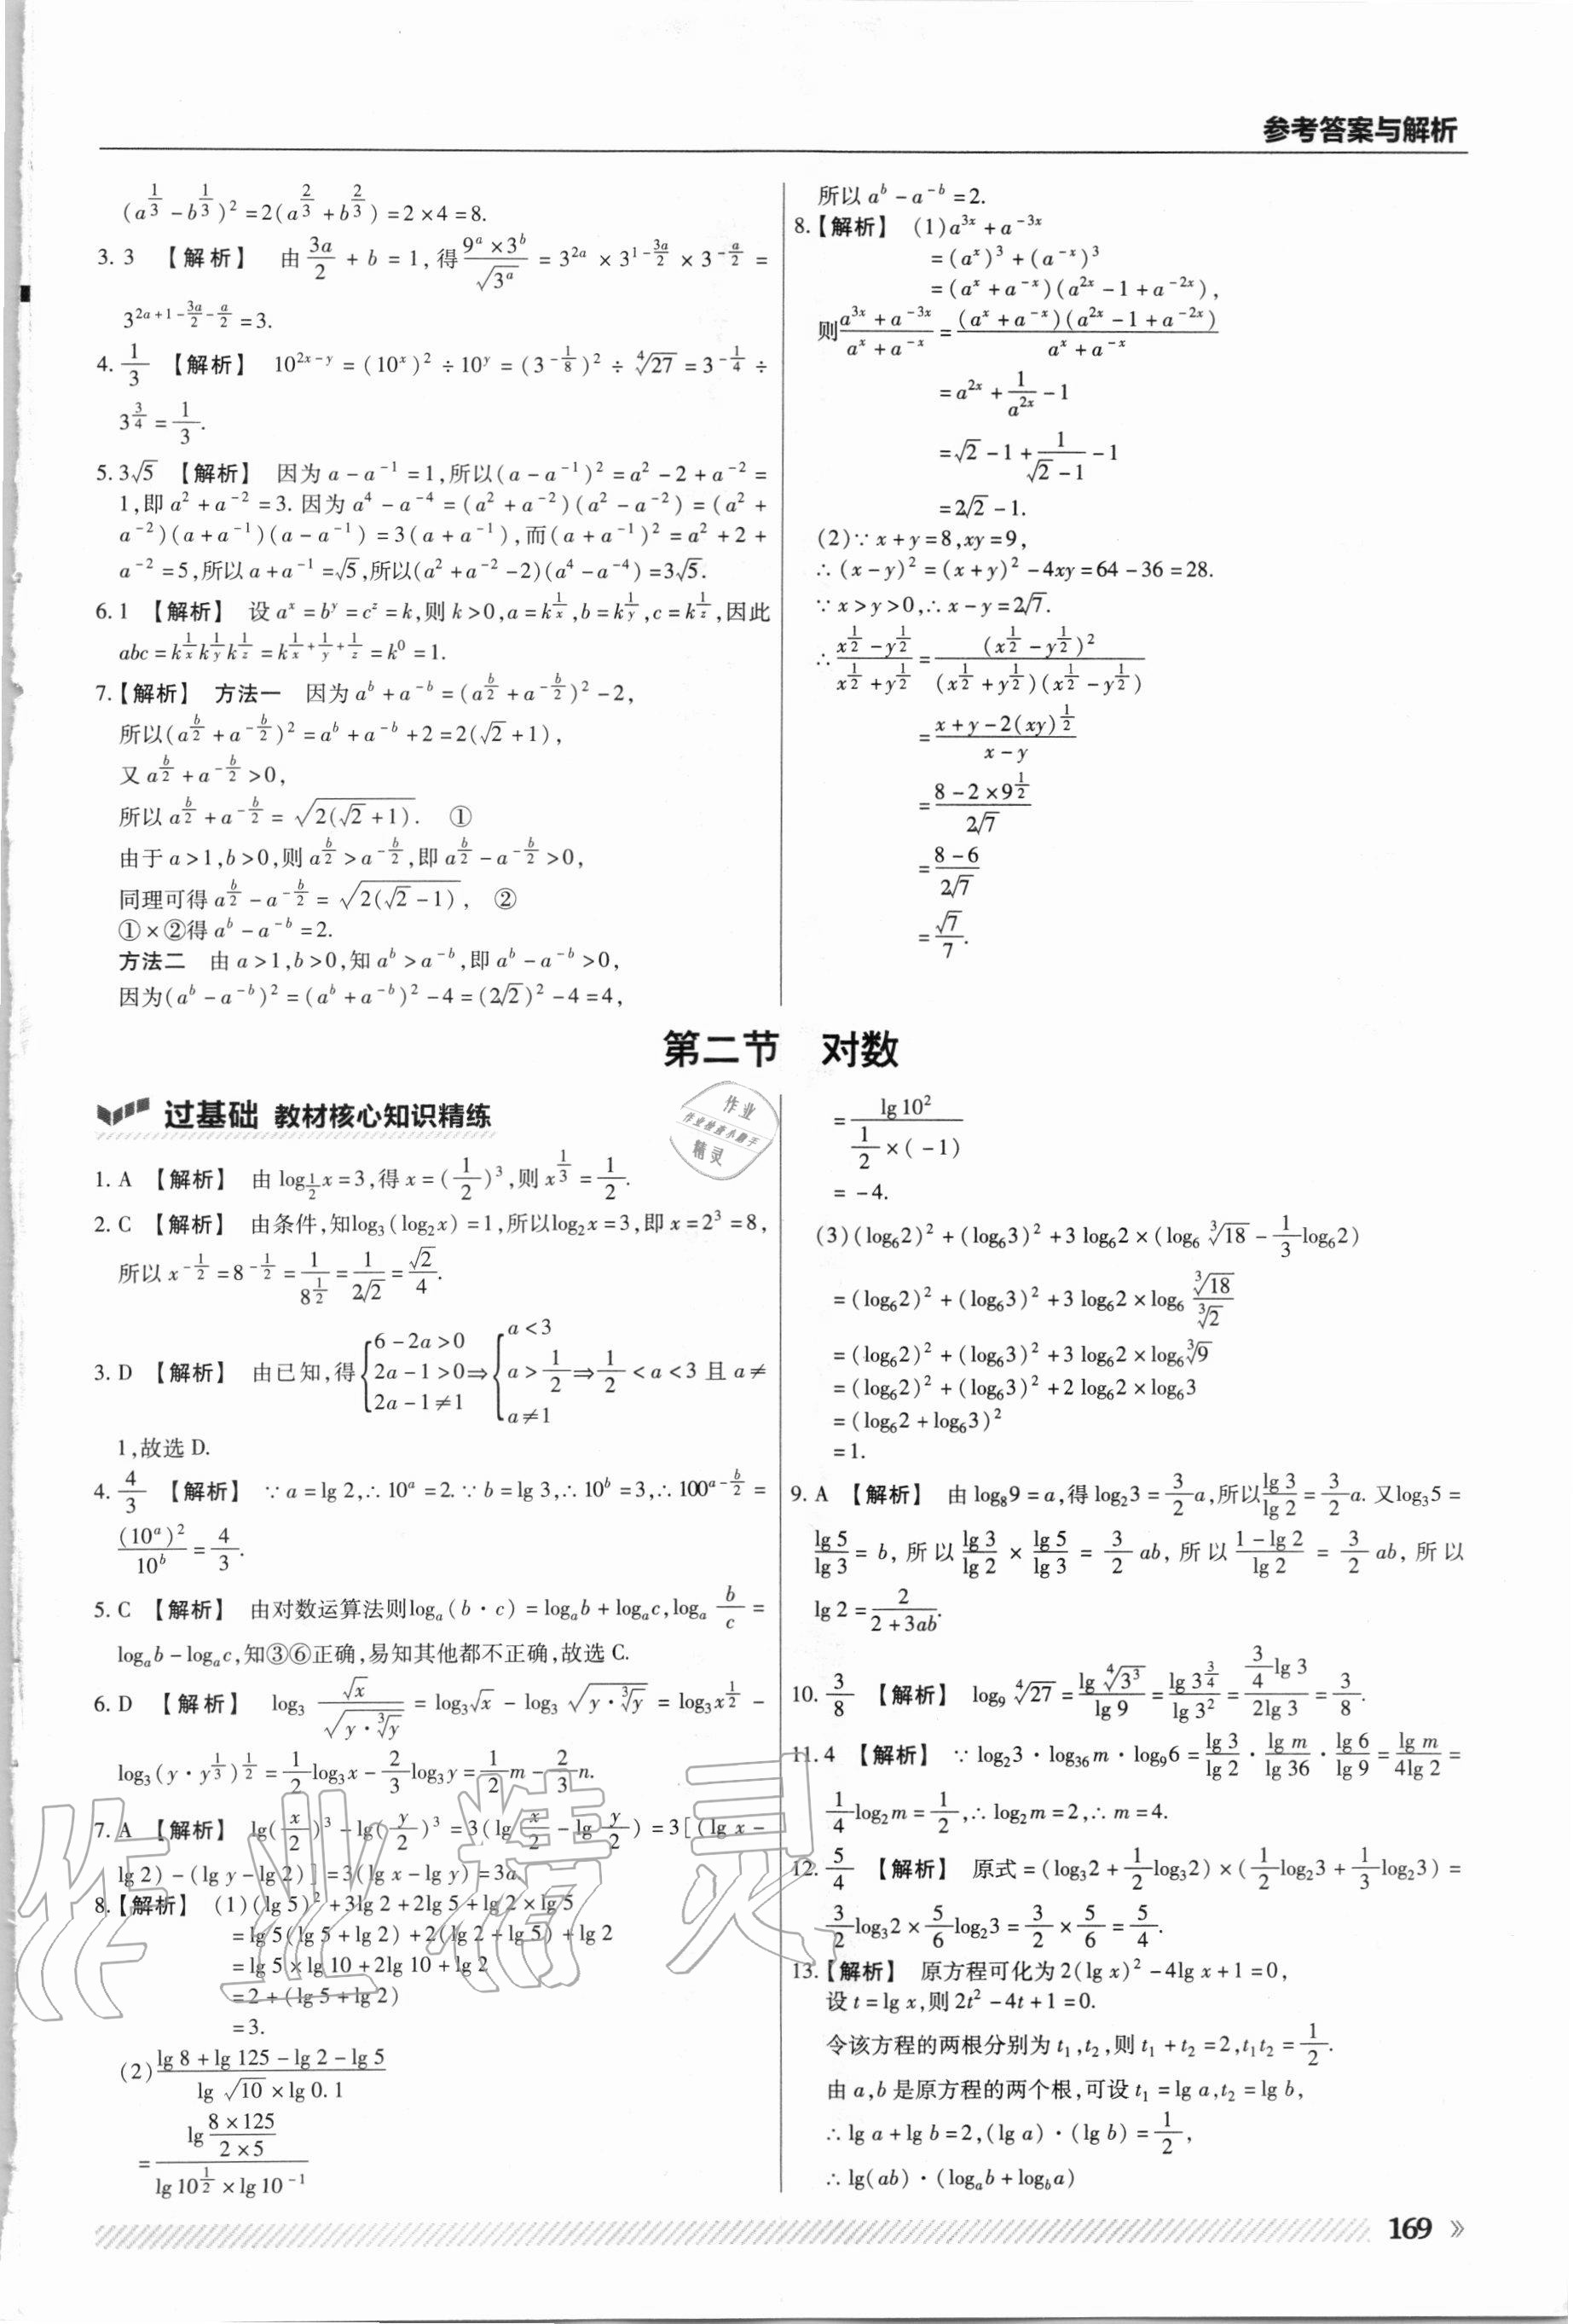 参考答案与解析
(a^{1/3}-b^{1/3})^2=2(a^{2/3}+b^{2/3})=2×4=8.
3. 3 【解析】 由\frac{3a}{2}+b=1,得\frac{9^a×3^b}{\sqrt{3^a}}=3^{2a}×3^{1-\frac{3a}{2}}×3^{-\frac{a}{2}}=
3^{2a+1-\frac{3a}{2}-\frac{a}{2}}=3.
4. \frac{1}{3} 【解析】 10^{2x-y}=(10^x)^2÷10^y=(3^{-\frac{1}{8}})^2÷\sqrt[4]{27}=3^{-\frac{1}{4}}÷
3^{\frac{3}{4}}=\frac{1}{3}.
5. 3√5 【解析】 因为a-a^{-1}=1,所以(a-a^{-1})^2=a^2-2+a^{-2}=
1,即a^2+a^{-2}=3.因为a^4-a^{-4}=(a^2+a^{-2})(a^2-a^{-2})=(a^2+
a^{-2})(a+a^{-1})(a-a^{-1})=3(a+a^{-1}),而(a+a^{-1})^2=a^2+2+
a^{-2}=5,所以a+a^{-1}=√5,所以(a^2+a^{-2}-2)(a^4-a^{-4})=3√5.
6. 1 【解析】 设a^x=b^y=c^z=k,则k>0,a=k^{\frac{1}{x}},b=k^{\frac{1}{y}},c=k^{\frac{1}{z}},因此
abc=k^{\frac{1}{x}}k^{\frac{1}{y}}k^{\frac{1}{z}}=k^{\frac{1}{x}+\frac{1}{y}+\frac{1}{z}}=k^0=1.
7.【解析】 方法一 因为a^b+a^{-b}=(a^{\frac{b}{2}}+a^{-\frac{b}{2}})^2-2,
所以(a^{\frac{b}{2}}+a^{-\frac{b}{2}})^2=a^b+a^{-b}+2=2(√2+1),
又a^{\frac{b}{2}}+a^{-\frac{b}{2}}>0,
所以a^{\frac{b}{2}}+a^{-\frac{b}{2}}=\sqrt{2(√2+1)}. ①
由于a>1,b>0,则a^{\frac{b}{2}}>a^{-\frac{b}{2}},即a^{\frac{b}{2}}-a^{-\frac{b}{2}}>0,
同理可得a^{\frac{b}{2}}-a^{-\frac{b}{2}}=\sqrt{2(√2-1)}, ②
①×②得a^b-a^{-b}=2.
方法二 由a>1,b>0,知a^b>a^{-b},即a^b-a^{-b}>0,
因为(a^b-a^{-b})^2=(a^b+a^{-b})^2-4=(2√2)^2-4=4,
所以a^b-a^{-b}=2.
8.【解析】 (1)a^{3x}+a^{-3x}
=(a^x)^3+(a^{-x})^3
=(a^x+a^{-x})(a^{2x}-1+a^{-2x}),
则\frac{a^{3x}+a^{-3x}}{a^x+a^{-x}}=\frac{(a^x+a^{-x})(a^{2x}-1+a^{-2x})}{a^x+a^{-x}}
=a^{2x}+\frac{1}{a^{2x}}-1
=√2-1+\frac{1}{√2-1}-1
=2√2-1.
(2)∵x+y=8,xy=9,
∴(x-y)^2=(x+y)^2-4xy=64-36=28.
∵x>y>0,∴x-y=2√7.
∴\frac{x^{\frac{1}{2}}-y^{\frac{1}{2}}}{x^{\frac{1}{2}}+y^{\frac{1}{2}}}=\frac{(x^{\frac{1}{2}}-y^{\frac{1}{2}})^2}{(x^{\frac{1}{2}}+y^{\frac{1}{2}})(x^{\frac{1}{2}}-y^{\frac{1}{2}})}
=\frac{x+y-2(xy)^{\frac{1}{2}}}{x-y}
=\frac{8-2×9^{\frac{1}{2}}}{2√7}
=\frac{8-6}{2√7}
=\frac{√7}{7}.
第二节 对数
过基础 教材核心知识精练
1. A 【解析】 由log_{\frac{1}{2}}x=3,得x=(\frac{1}{2})^3,则x^{\frac{1}{3}}=\frac{1}{2}.
2. C 【解析】 由条件,知log_3(log_2x)=1,所以log_2x=3,即x=2^3=8,
所以x^{-\frac{1}{2}}=8^{-\frac{1}{2}}=\frac{1}{8^{\frac{1}{2}}}=\frac{1}{2√2}=\frac{√2}{4}.
3. D 【解析】 由已知,得{6-2a>0 2a-1>0 2a-1≠1⇒{a<3 a>\frac{1}{2} a≠1⇒\frac{1}{2}<a<3且a≠
1,故选D.
4. \frac{4}{3} 【解析】 ∵a=lg 2,∴10^a=2.∵b=lg 3,∴10^b=3,∴100^{a-\frac{b}{2}}=
\frac{(10^a)^2}{10^b}=\frac{4}{3}.
5. C 【解析】 由对数运算法则log_a(b·c)=log_ab+log_ac,log_a\frac{b}{c}=
log_ab-log_ac,知③⑥正确,易知其他都不正确,故选C.
6. D 【解析】 log_3\frac{\sqrt{x}}{\sqrt{y·\sqrt[3]{y}}}=log_3\sqrt{x}-log_3\sqrt{y·\sqrt[3]{y}}=log_3x^{\frac{1}{2}}-
log_3(y·y^{\frac{1}{3}})^{\frac{1}{2}}=\frac{1}{2}log_3x-\frac{2}{3}log_3y=\frac{1}{2}m-\frac{2}{3}n.
7. A 【解析】 lg(\frac{x}{2})^3-lg(\frac{y}{2})^3=3(lg\frac{x}{2}-lg\frac{y}{2})=3[(lg x-
lg 2)-(lg y-lg 2)]=3(lg x-lg y)=3a.
8.【解析】 (1)(lg 5)^2+3lg 2+2lg 5+lg 2×lg 5
=lg 5(lg 5+lg 2)+2(lg 2+lg 5)+lg 2
=lg 5×lg 10+2lg 10+lg 2
=2+(lg 5+lg 2)
=3.
(2)\frac{lg 8+lg 125-lg 2-lg 5}{lg\sqrt{10}×lg 0.1}
=\frac{lg\frac{8×125}{2×5}}{lg 10^{\frac{1}{2}}×lg 10^{-1}}
=\frac{lg 10^2}{\frac{1}{2}×(-1)}
=-4.
(3)(log_62)^2+(log_63)^2+3log_62×(log_6\sqrt[3]{18}-\frac{1}{3}log_62)
=(log_62)^2+(log_63)^2+3log_62×log_6\frac{\sqrt[3]{18}}{\sqrt[3]{2}}
=(log_62)^2+(log_63)^2+3log_62×log_6\sqrt[3]{9}
=(log_62)^2+(log_63)^2+2log_62×log_63
=(log_62+log_63)^2
=1.
9. A 【解析】 由log_89=a,得log_23=\frac{3}{2}a,所以\frac{lg 3}{lg 2}=\frac{3}{2}a.又log_35=
\frac{lg 5}{lg 3}=b,所以\frac{lg 3}{lg 2}×\frac{lg 5}{lg 3}=\frac{3}{2}ab,所以\frac{1-lg 2}{lg 2}=\frac{3}{2}ab,所以
lg 2=\frac{2}{2+3ab}.
10. \frac{3}{8} 【解析】 log_9\sqrt[4]{27}=\frac{lg\sqrt[4]{3^3}}{lg 9}=\frac{lg 3^{\frac{3}{4}}}{lg 3^2}=\frac{\frac{3}{4}lg 3}{2lg 3}=\frac{3}{8}.
11. 4 【解析】 ∵log_23·log_{36}m·log_96=\frac{lg 3}{lg 2}·\frac{lg m}{lg 36}·\frac{lg 6}{lg 9}=\frac{lg m}{4lg 2}=
\frac{1}{4}log_2m=\frac{1}{2},∴log_2m=2,∴m=4.
12. \frac{5}{4} 【解析】 原式=(log_32+\frac{1}{2}log_32)×(\frac{1}{2}log_23+\frac{1}{3}log_23)=
\frac{3}{2}log_32×\frac{5}{6}log_23=\frac{3}{2}×\frac{5}{6}=\frac{5}{4}.
13.【解析】 原方程可化为2(lg x)^2-4lg x+1=0,
设t=lg x,则2t^2-4t+1=0.
令该方程的两根分别为t_1,t_2,则t_1+t_2=2,t_1t_2=\frac{1}{2}.
由a,b是原方程的两个根,可设t_1=lg a,t_2=lg b,
∴lg a+lg b=2,(lg a)·(lg b)=\frac{1}{2},
∴lg(ab)·(log_ab+log_ba)
169
作业
精灵
作业精灵